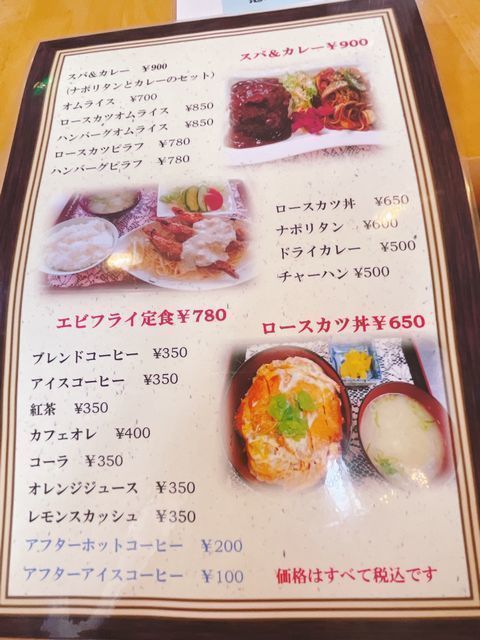 スパ&カレー ¥900
スパ&カレー ¥900
(ナポリタンとカレーのセット)
オムライス ¥700
ロースカツオムライス ¥850
ハンバーグオムライス ¥850
ロースカツピラフ ¥780
ハンバーグピラフ ¥780
ロースカツ丼 ¥650
ナポリタン ¥600
ドライカレー ¥500
チャーハン ¥500
エビフライ定食¥780
ロースカツ丼¥650
ブレンドコーヒー ¥350
アイスコーヒー ¥350
紅茶 ¥350
カフェオレ ¥400
コーラ ¥350
オレンジジュース ¥350
レモンスカッシュ ¥350
アフターホットコーヒー ¥200
アフターアイスコーヒー ¥100
価格はすべて税込です